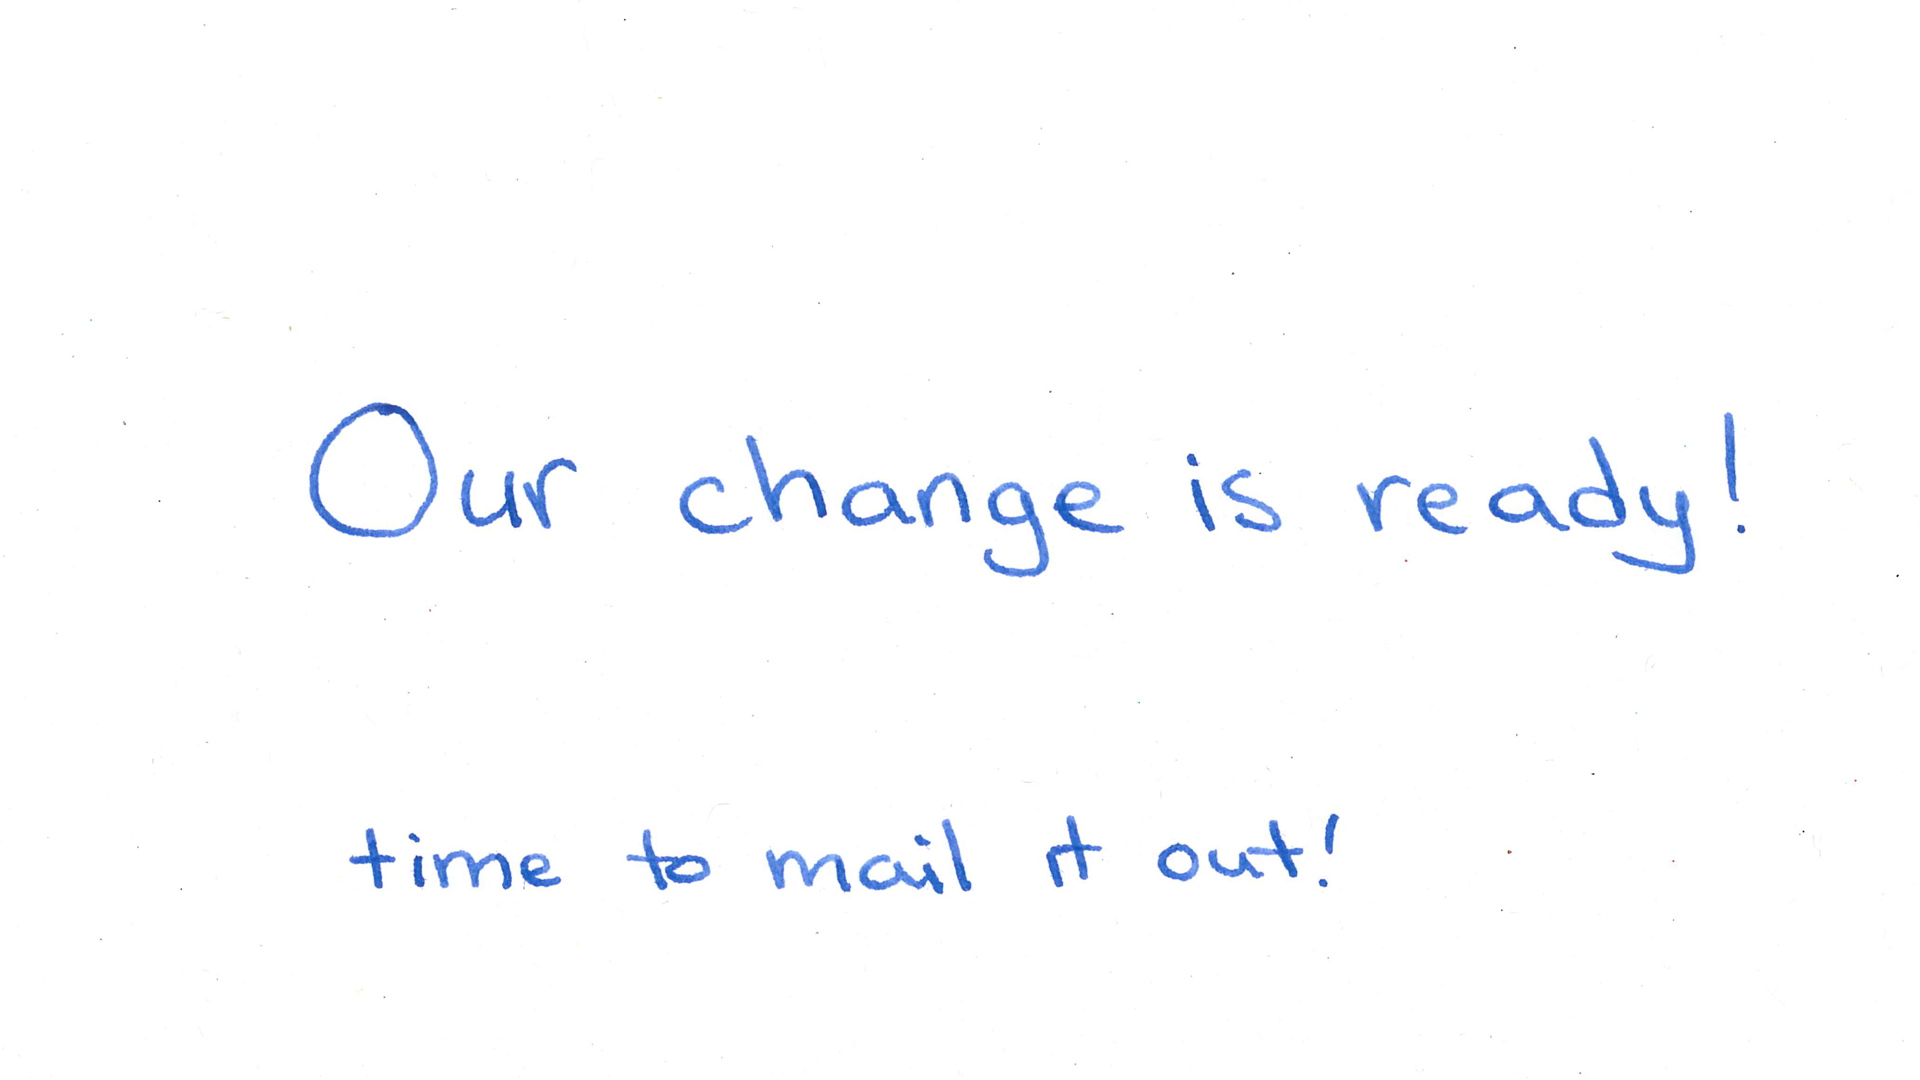 Our change is ready!
time to mail it out!